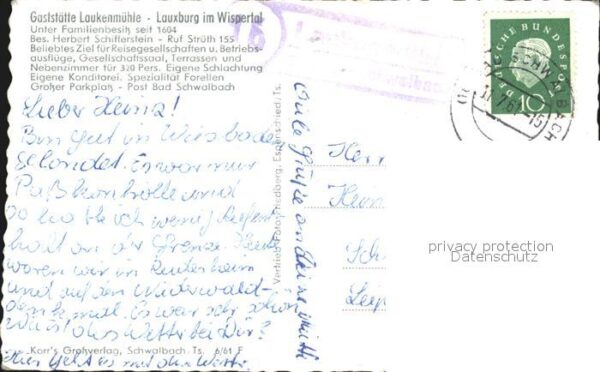 Gaststätte Laukenmühle - Lauxburg im Wispertal
Unter Familienbesitz seit 1604
Bes. Herbert Schifferstein - Ruf Strüth 155
Beliebtes Ziel für Reisegesellschaften u. Betriebs-
ausflüge, Gesellschaftssaal, Terrassen und
Nebenzimmer für 320 Pers. Eigene Schlachtung
Eigene Konditorei. Spezialität Forellen
Großer Parkplatz - Post Bad Schwalbach
Lieber Heinz!
Bin gut in Wiesbaden
gelandet. Es war nur
Paßkontrolle und
so hatte ich wenig Aufent
halt an der Grenze. Heute
waren wir in
und auf dem Niederwald-
denkmal. Es war sehr schön
Was das Wetter bei Dir?
Hier geht es mit dem Wetter
Korr's Großverlag, Schwalbach Ts. 6/61 F
Viele Grüße an Deine Mutti
Vertrieb: Foto-Friedberg, Espenschied, Ts.
DEUTSCHE BUNDESPOST
10
SCHWALBACH
Herr
Hein
Leip
privacy protection
Datenschutz